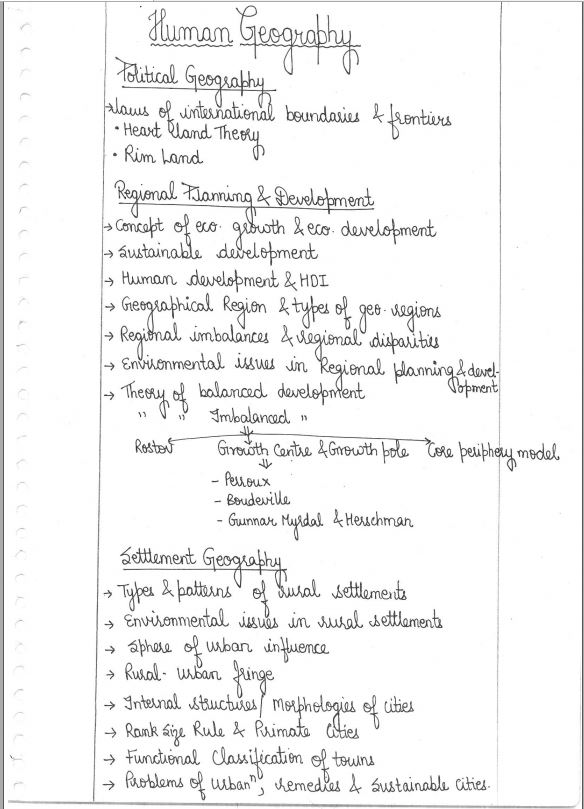 Human Geography
Political Geography
→Laws of international boundaries & frontiers
• Heart land Theory
• Rim Land
Regional Planning & Development
→ Concept of eco. growth & eco. development
→ Sustainable development
→ Human development & HDI
→ Geographical Region & types of geo. regions
→ Regional imbalances & regional disparities
→ Environmental issues in Regional planning & devel-
opment
→ Theory of balanced development
" " Imbalanced "
Rostov Growth Centre & Growth pole Core periphery model
- Perroux
- Boudeville
- Gunnar Myrdal & Herschman
Settlement Geography
→ Types & patterns of rural settlements
→ Environmental issues in rural settlements
→ Sphere of urban influence
→ Rural-urban fringe
→ Internal structures/ Morphologies of cities
→ Rank Size Rule & Primate Cities
→ Functional Classification of towns
→ Problems of urbanⁿ, remedies & Sustainable Cities.